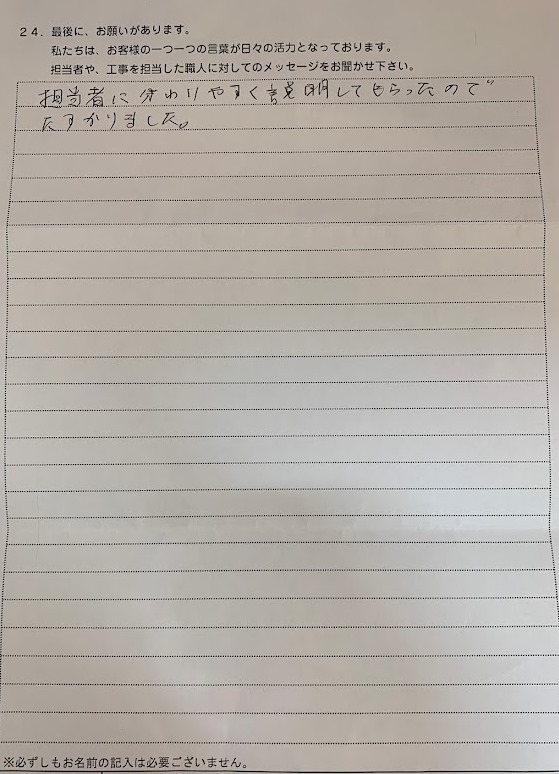 ２４．最後に、お願いがあります。
私たちは、お客様の一つ一つの言葉が日々の活力となっております。
担当者や、工事を担当した職人に対してのメッセージをお聞かせ下さい。
担当者に分わりやすく説明してもらったので
たすかりました。
※必ずしもお名前の記入は必要ございません。